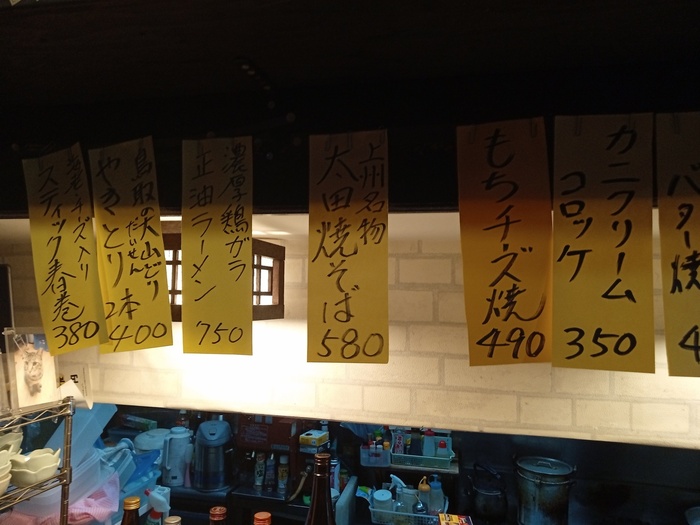 カニクリーム
コロッケ
350
もちチーズ焼
490
上州名物
太田焼そば
580
濃厚鶏ガラ
正油ラーメン
750
鳥取の大山どり
だいせん
やきとり 2本
400
チーズ入り
スティック春巻
380
バター焼
4